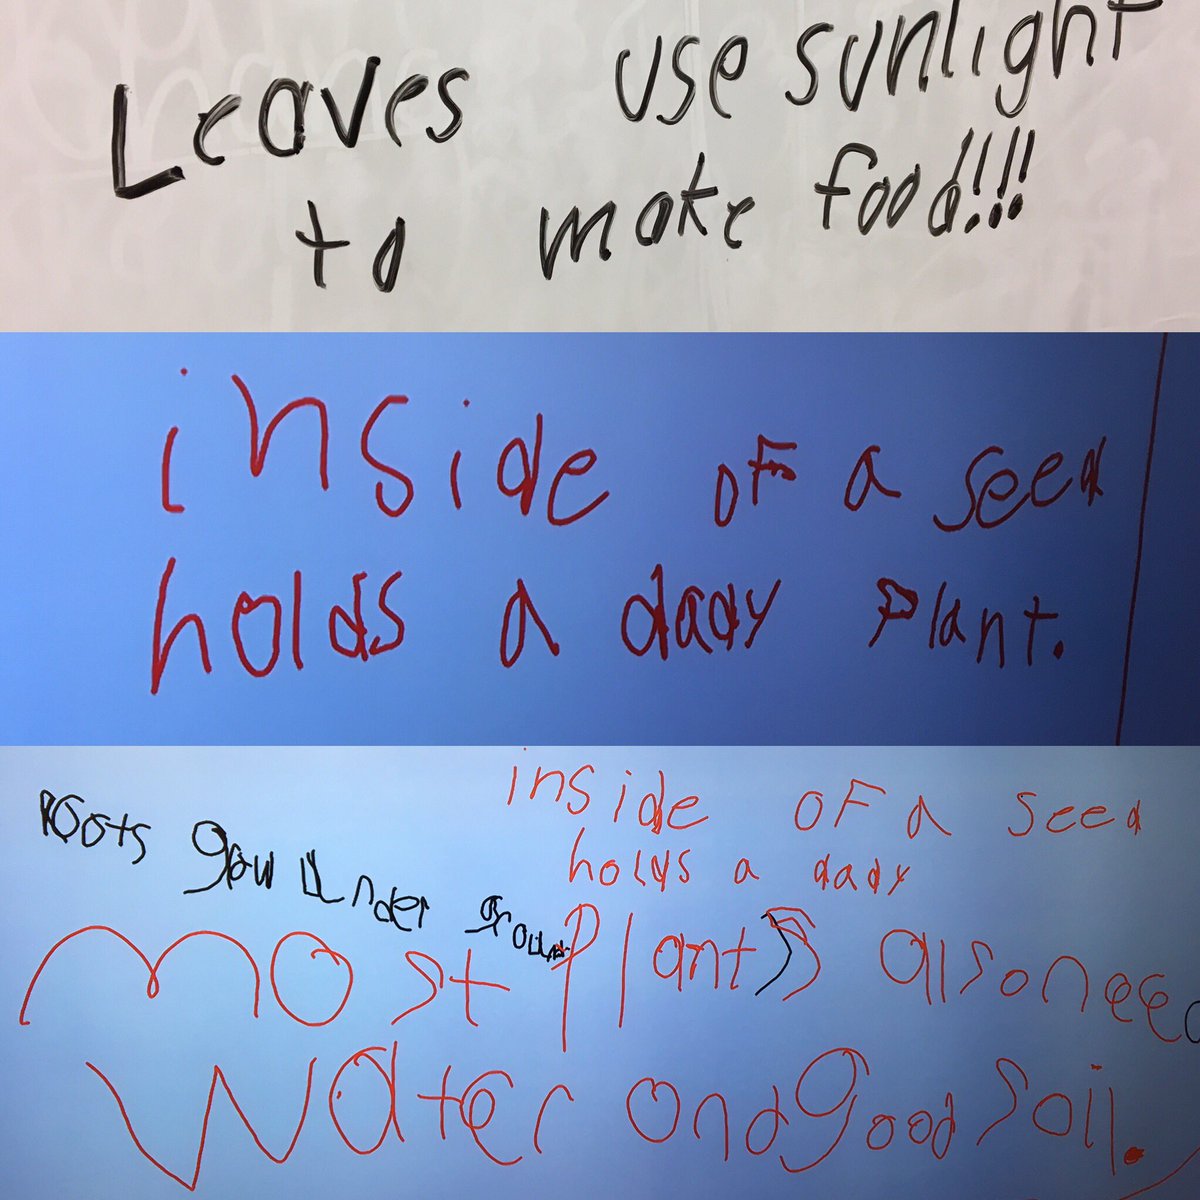 Leaves use sunlight
to make food!!!
inside of a seed
holds a dady plant.
inside of a seed
holds a dady
Roots gow Under ground
most plants also need
water and good soil.